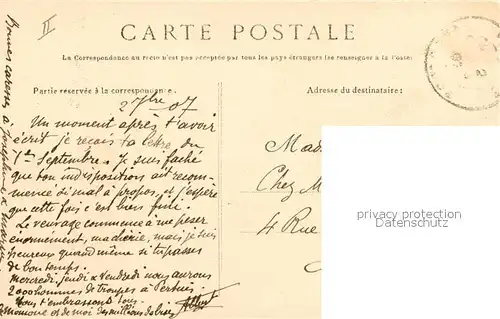 II
CARTE POSTALE
La Correspondance au recto n'est pas acceptée par tous les pays étrangers (se renseigner à la Poste)
Partie réservée à la correspondance.
Adresse du destinataire:
2 7bre 07
Un moment après t'avoir
écrit je reçois ta lettre du
1er Septembre. Je suis faché
que ton indisposition ait recom-
mencé si mal à propos, et j'espère
que cette fois c'est bien fini.
Le veuvage commence à me peser
énormément, ma chérie, mais je suis
heureux quand même si tu passes
de bon temps.
Mercredi, jeudi & Vendredi nous aurons
2000 hommes de troupes à Pertuis
Nous t'embrassons tous.
Momone et de moi des millions de
Albert
Bonnes caresses à Josephine &
Mad
Chez M
4 Rue
privacy protection
Datenschutz